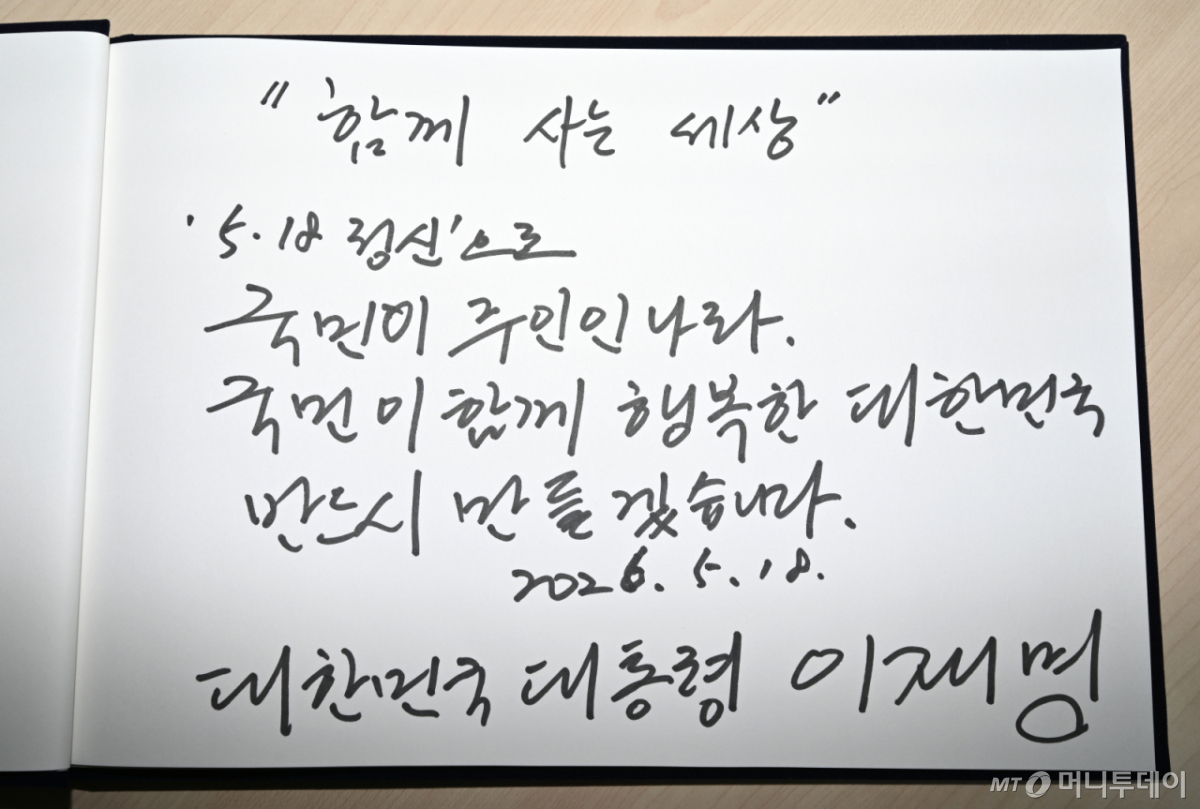 "함께 사는 세상"
'5.18 정신'으로
국민이 주인인 나라.
국민이 함께 행복한 대한민국
반드시 만들겠습니다.
2026. 5. 18.
대한민국 대통령 이재명
MT 머니투데이